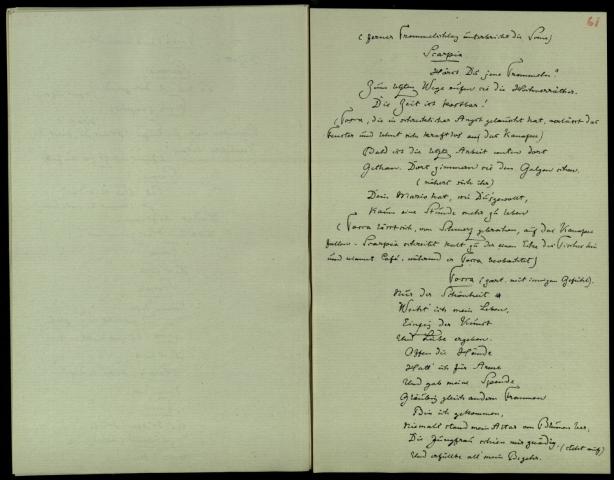 61
(ferner Trommelschlag unterbricht die Szene)
Scarpia
Hörst Du jene Trommeln?
Zum letzten Wege rufen sie die Hochverräther.
Die Zeit ist kostbar!
(Tosca, die in schrecklicher Angst gelauscht hat, verlässt das
Fenster und lehnt sich kraftlos auf das Kanapee)
Bald ist die letzte Arbeit unten dort
Gethan. Dort zimmern sie den Galgen schon.
(nähert sich ihr)
Dein Mario hat, wie Du's gewollt,
Kaum eine Stunde mehr zu leben
(Tosca lässt sich, vom Schmerz gebrochen, auf das Kanapee
fallen - Scarpia schreitet kalt zu der einen Ecke des Tisches hin
und nimmt Café, während er Tosca beobachtet)
Tosca (zart, mit innigem Gefühl).
Nur der Schönheit
Weiht' ich mein Leben,
Einzig der Kunst
Und Liebe ergeben.
Offen die Hände
Hatt' ich für Arme
Und gab meine Spende
Gläubig gleich andern Frommen
Bin ich gekommen,
Niemals stand mein Altar von Blumen leer,
Die Jungfrau schien mir gnädig, (steht auf)
Und erfüllte all mein Begehr.